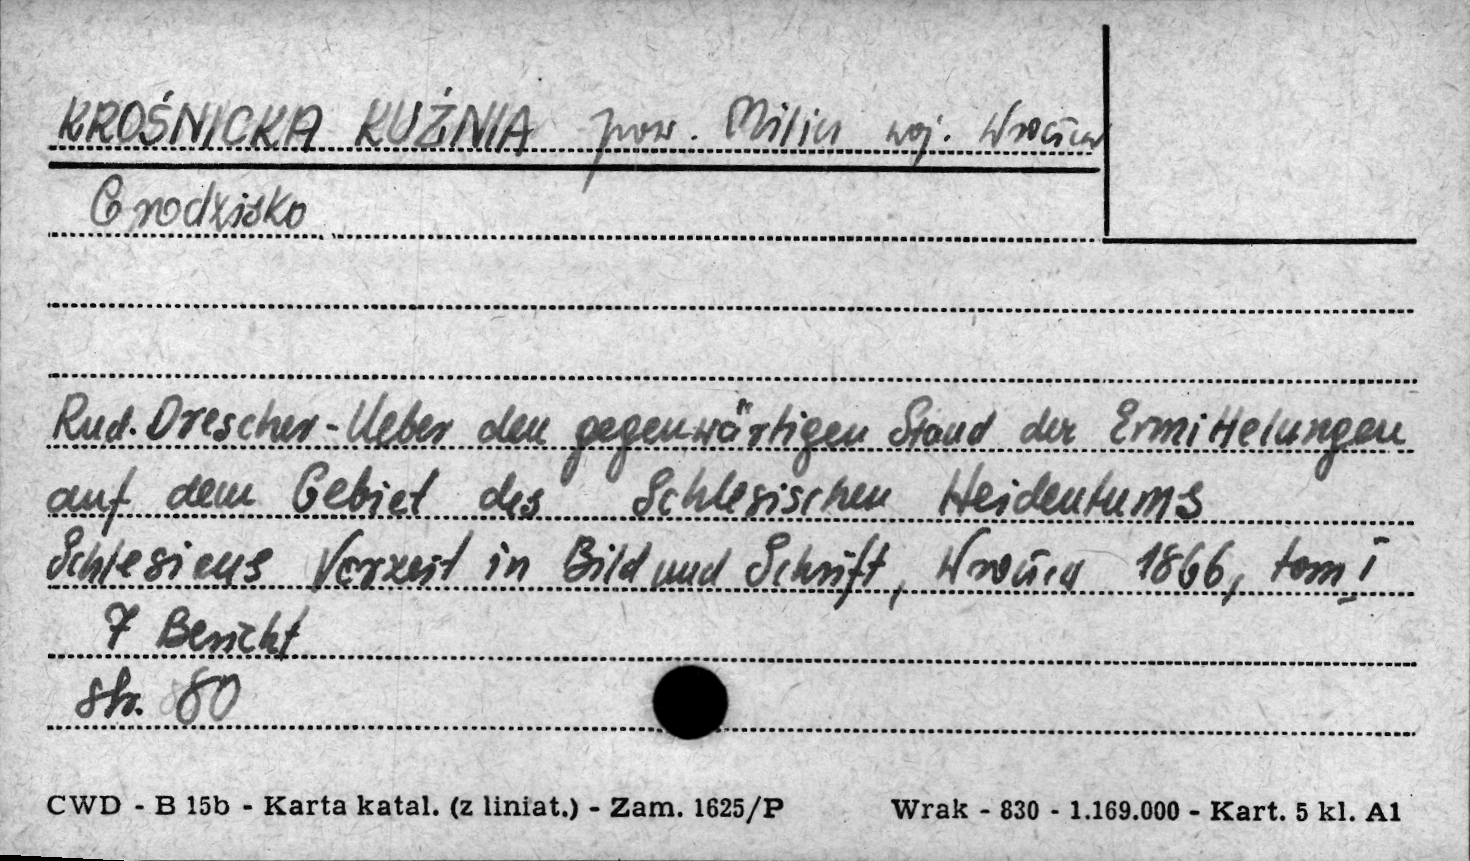 KROŚNICKA KUŹNIA pow. Milicz woj. Wrocław
Grodzisko
Rud. Drescher - Ueber den gegenwärtigen Stand der Ermittelungen
auf dem Gebiet des Schlesischen Heidentums
Schlesiens Vorzeit in Bild und Schrift, Wrocław 1866, tom I
7 Bericht
str. 80
CWD - B 15b - Karta katal. (z liniat.) - Zam. 1625/P Wrak - 830 - 1.169.000 - Kart. 5 kl. A1